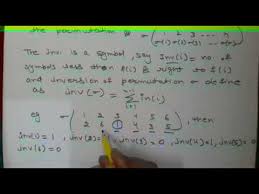 the permutation is σ (1 2 3 ... n
σ(1) σ(2) σ(3) ... σ(n))
The inv. is a symbol, say Inv(i) = no. of
symbols less than σ(i) is right to σ(i)
and inversion of permutation σ define
as inv(σ) =
eg σ (1 2 3 4 5 6
2 6 1 3 5) then
inv(1) = 1 , inv(3) = 0 , inv(4)=1, inv(5)=0
inv(6) = 0